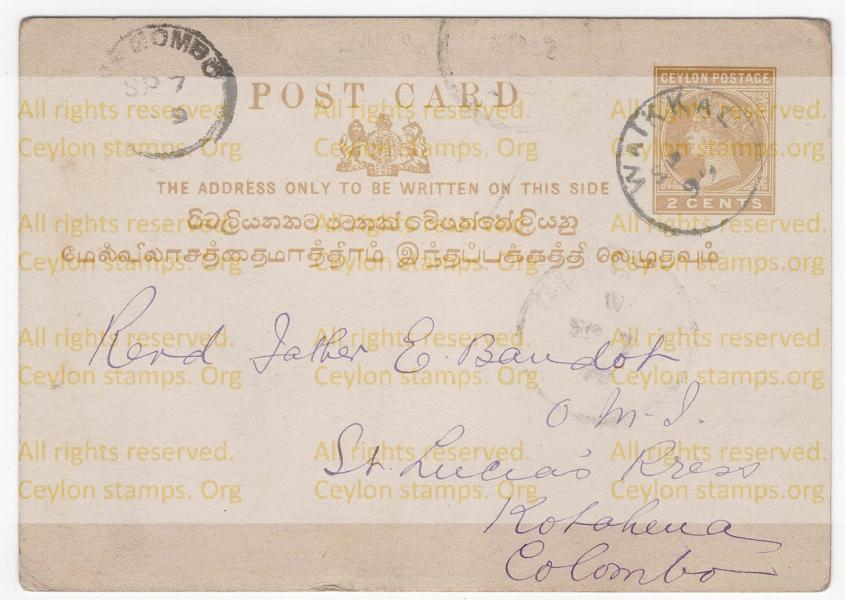 NEGOMBO
SP 7
9
POST CARD
CEYLON POSTAGE
2 CENTS
WAIKKAL
THE ADDRESS ONLY TO BE WRITTEN ON THIS SIDE
மேல்விலாசத்தைமாத்திரம் இந்தப்பக்கத்தி லெழுதவும்
Revd Father E. Baudot
O M I.
St. Lucia's Press
Kotahena
Colombo
All rights reserved. All rights reserved. All rights reserved.
Ceylon stamps. Org Ceylon stamps. Org Ceylon stamps. Org
All rights reserved. All rights reserved. All rights reserved.
Ceylon stamps. Org Ceylon stamps. Org Ceylon stamps. Org
All rights reserved. All rights reserved. All rights reserved.
Ceylon stamps. Org Ceylon stamps. Org Ceylon stamps. Org
All rights reserved. All rights reserved. All rights reserved.
Ceylon stamps. Org Ceylon stamps. Org Ceylon stamps. Org